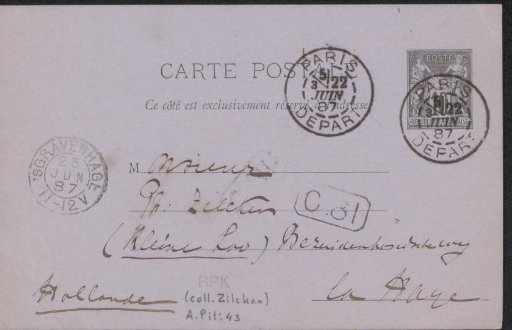 CARTE POSTALE
Ce côté est exclusivement réservé à l'adresse
PARIS
5 3 22
JUIN
87
DEPART
POSTE
PARIS
5 22
JUIN
87
DEPART
'SGRAVENHAGE
23
JUN
87
11-12V
M Monsieur
Ph. Zilcken
C. 81
(Kleine Loo) Bezuidenhoutscheweg
Hollande
la Haye
RPK
(coll. Zilcken)
A. Pit: 43